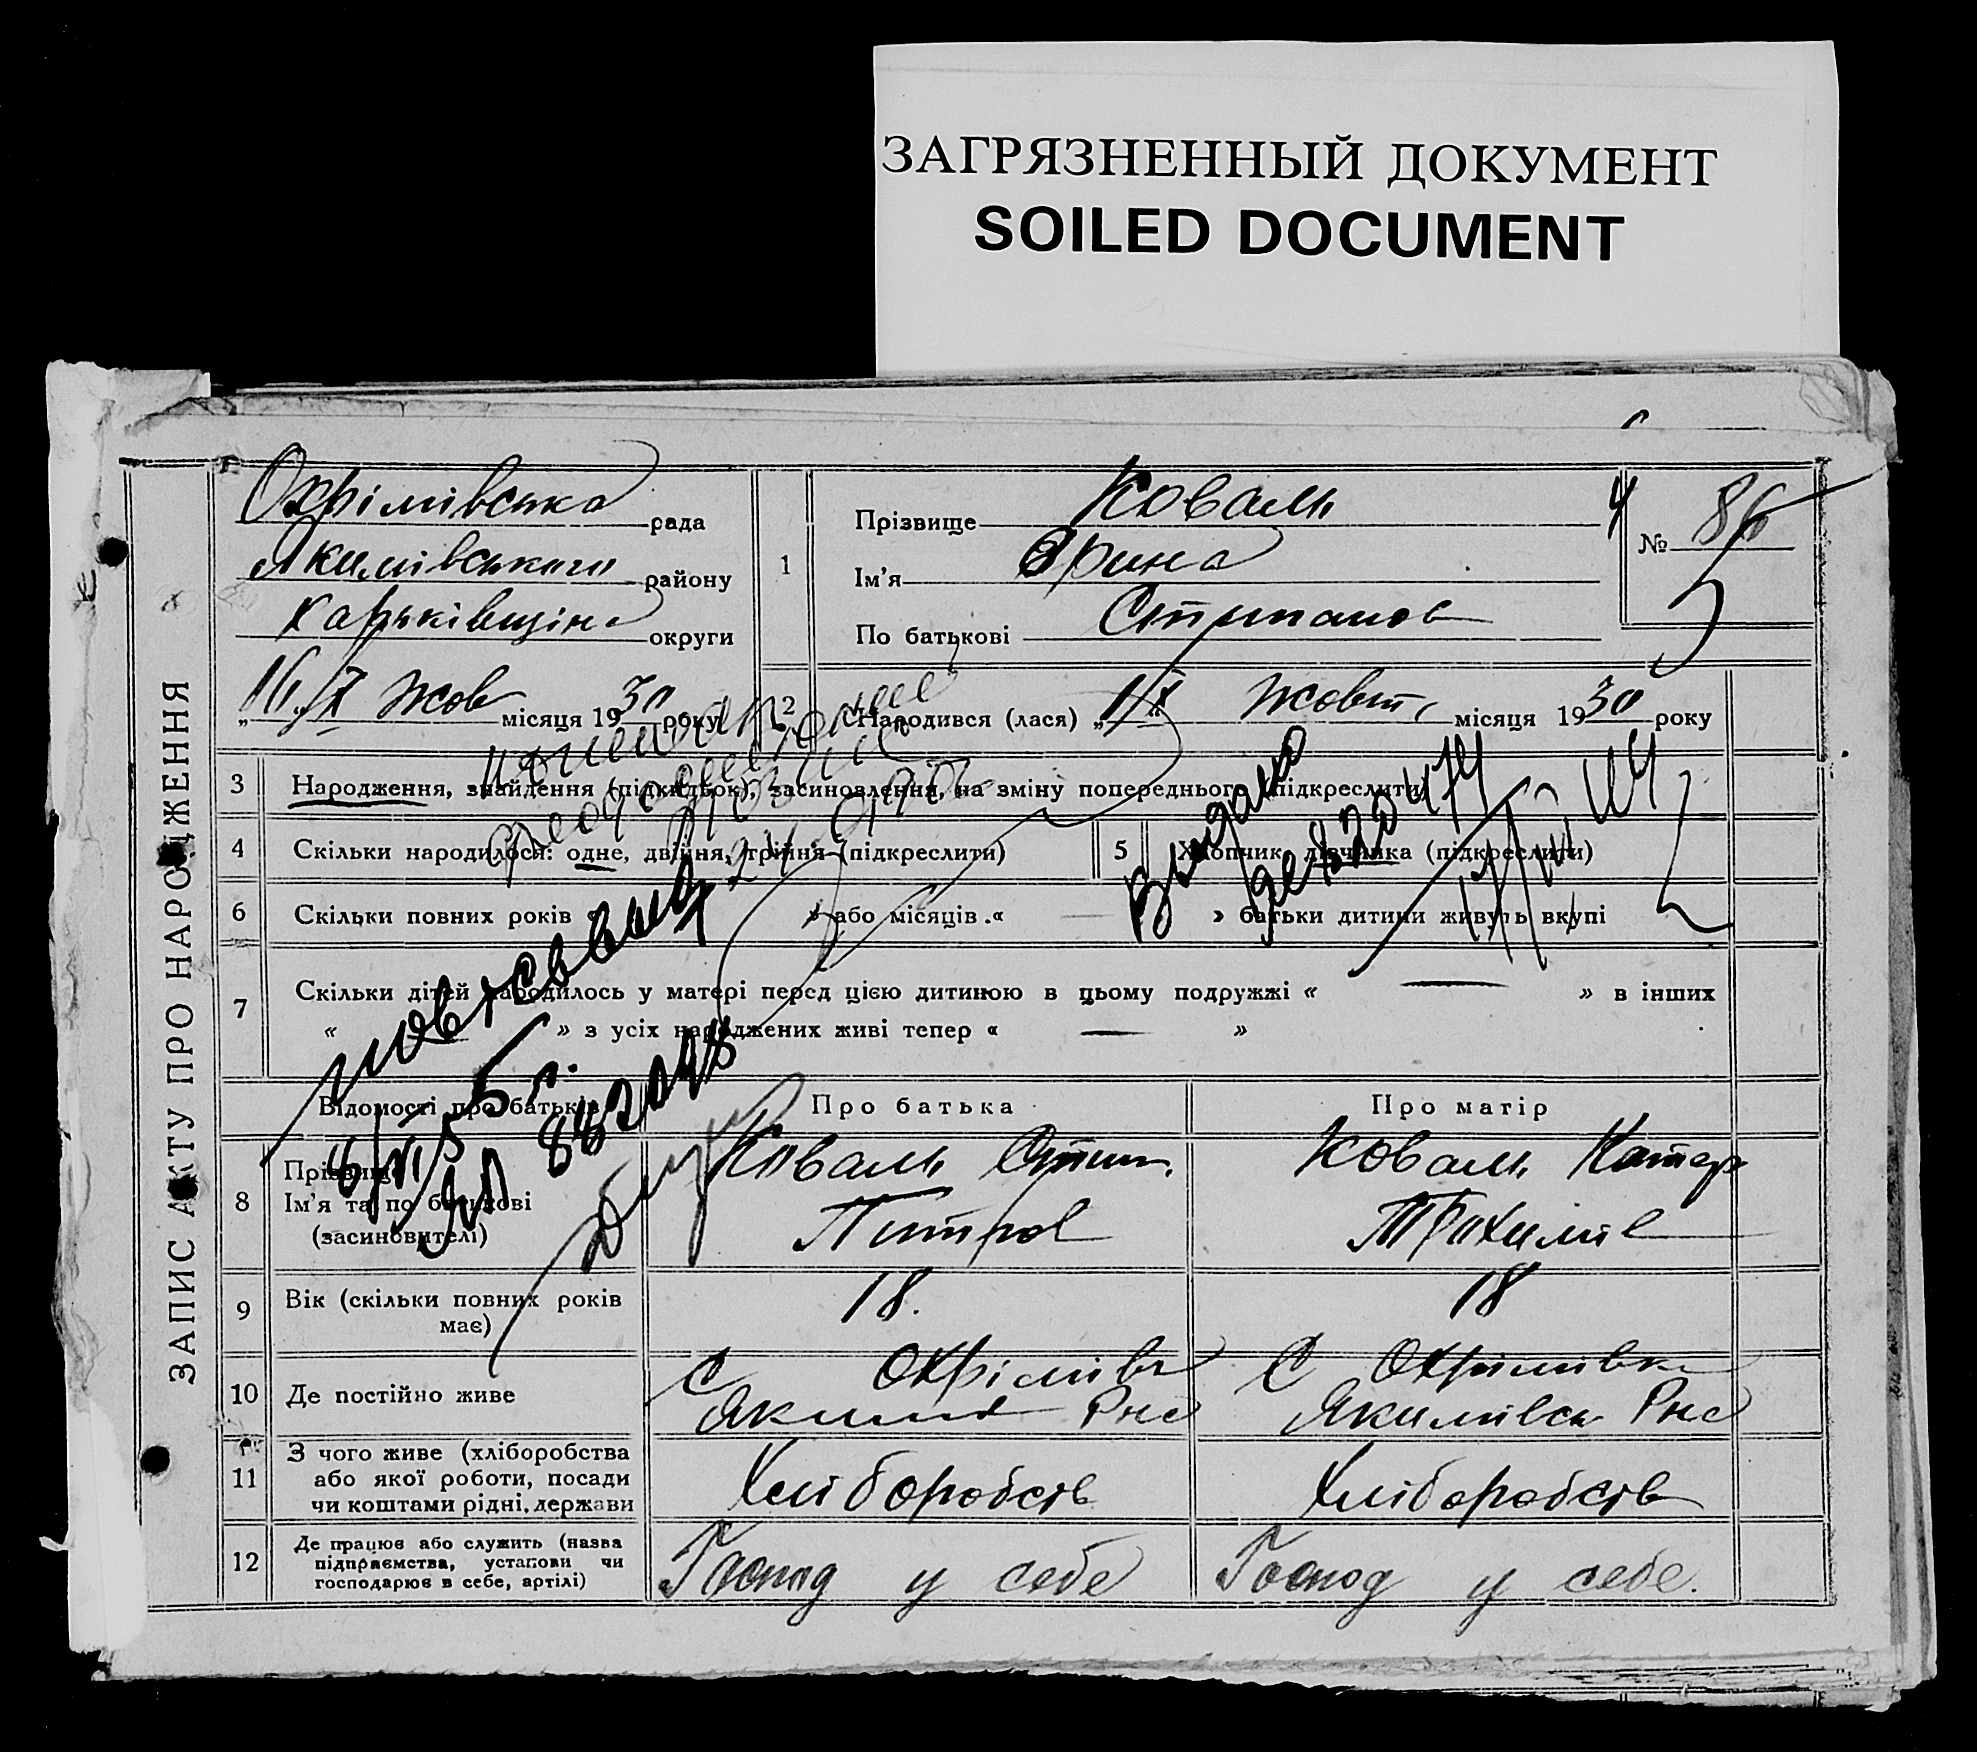 ЗАГРЯЗНЕННЫЙ ДОКУМЕНТ
SOILED DOCUMENT
ЗАПИС АКТУ ПРО НАРОДЖЕННЯ
Охрімівська рада
Якимівського району
округи
1
Прізвище Коваль
Ім'я Орина
По батькові Степанов
№ 86
"16/X Жов місяця 1930 року
2 Народився (лася) „1/X" Жовт, місяця 1930 року
3 Народження, знайдення (підкидьок), засиновлення, на зміну попереднього (підкреслити)
4 Скільки народилося: одне, двійня, трійня (підкреслити)
5 Хлопчик, дівчинка (підкреслити)
Выдано
6 Скільки повних років « » або місяців « — » батьки дитини живуть вкупі
7 Скільки дітей народилось у матері перед цією дитиною в цьому подружжі « — » в інших
« » з усіх народжених живі тепер « — »
Відомості про батьків
Про батька
Про матір
8 Прізвище
Ім'я та по батькові
(засиновителі)
Коваль Степ.
Питров
Коваль Катер
Трохимів
9 Вік (скільки повних років має)
18.
18
10 Де постійно живе
С Охрімівк
Якимів Рна
С Охримівка
Якимівськ Рна
11 З чого живе (хліборобства
або якої роботи, посади
чи коштами рідні, держави
Хліборобств
Хліборобств
12 Де працює або служить (назва
підприємства, установи чи
господарює в себе, артілі)
Господ у себе
Господ у себе.